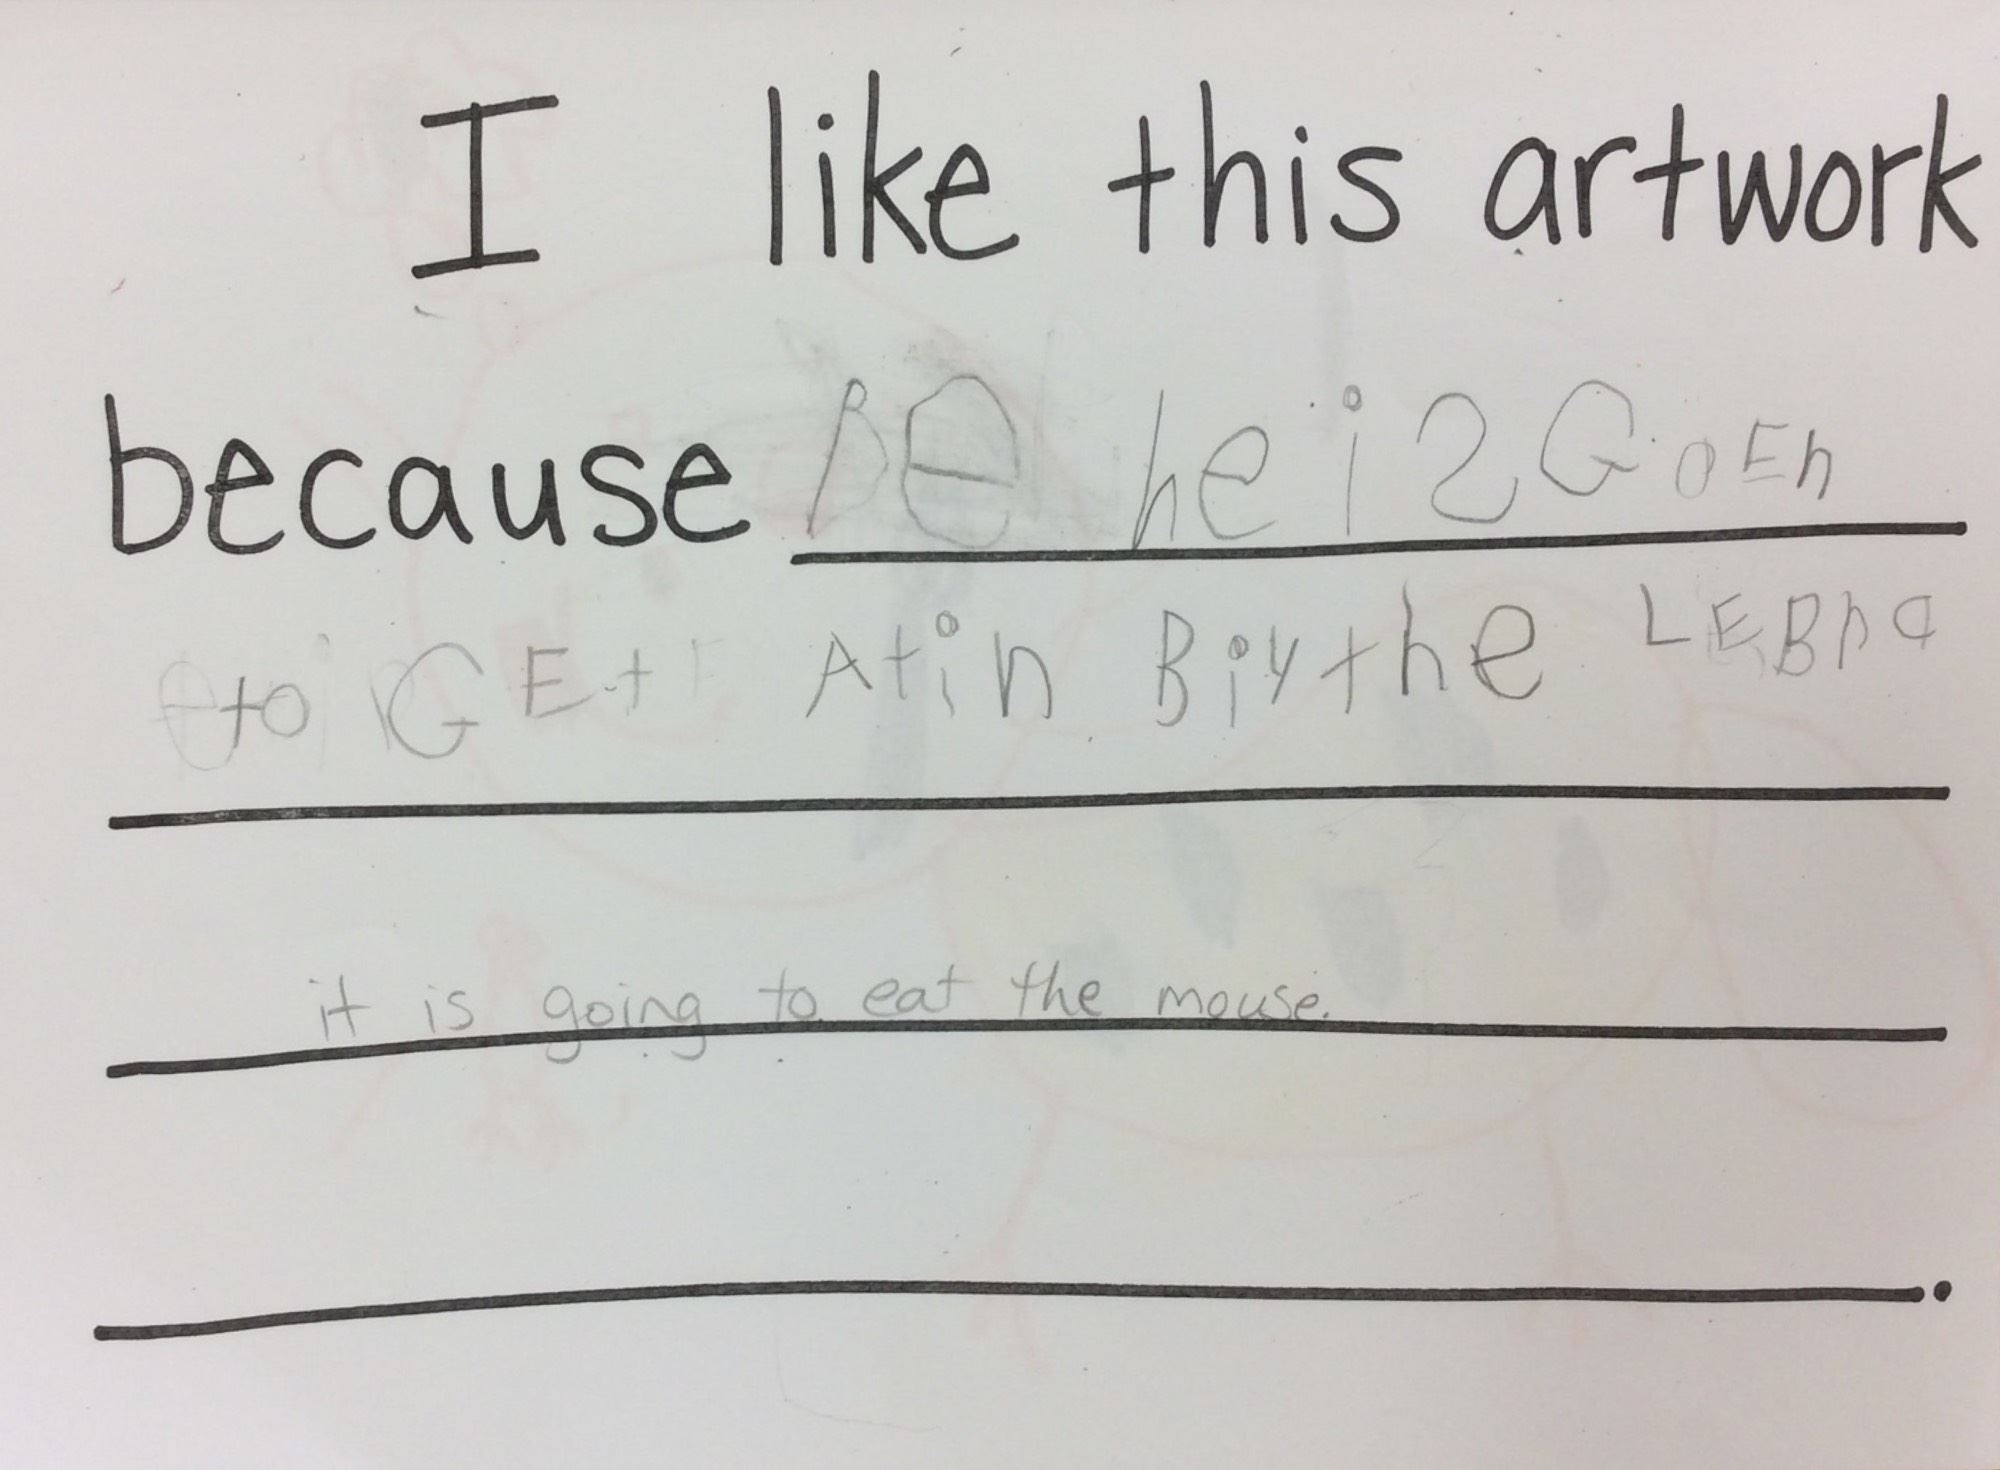 I like this artwork
because Be he is GoEn
to GEt Atin Biy the LEBPd
it is going to eat the mouse.